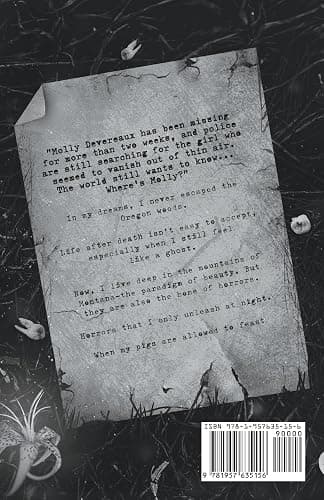 "Molly Devereaux has been missing
for more than two weeks, and police
are still searching for the girl who
seemed to vanish out of thin air.
The world still wants to know...
Where's Molly?"
In my dreams, I never escaped the
Oregon woods.
Life after death isn't easy to accept,
especially when I still feel
like a ghost.
Now, I live deep in the mountains of
Montana—the paradigm of beauty. But
they are also the bone of horrors.
Horrors that I only unleash at night.
When my pigs are allowed to feast.
ISBN 978-1-957635-15-6
90000
9 781957 635156